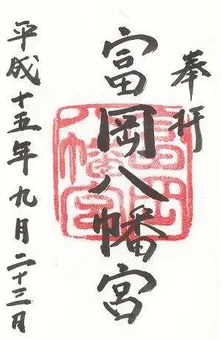 奉拝
富岡八幡宮
平成十五年九月二十三日
富岡八幡宮